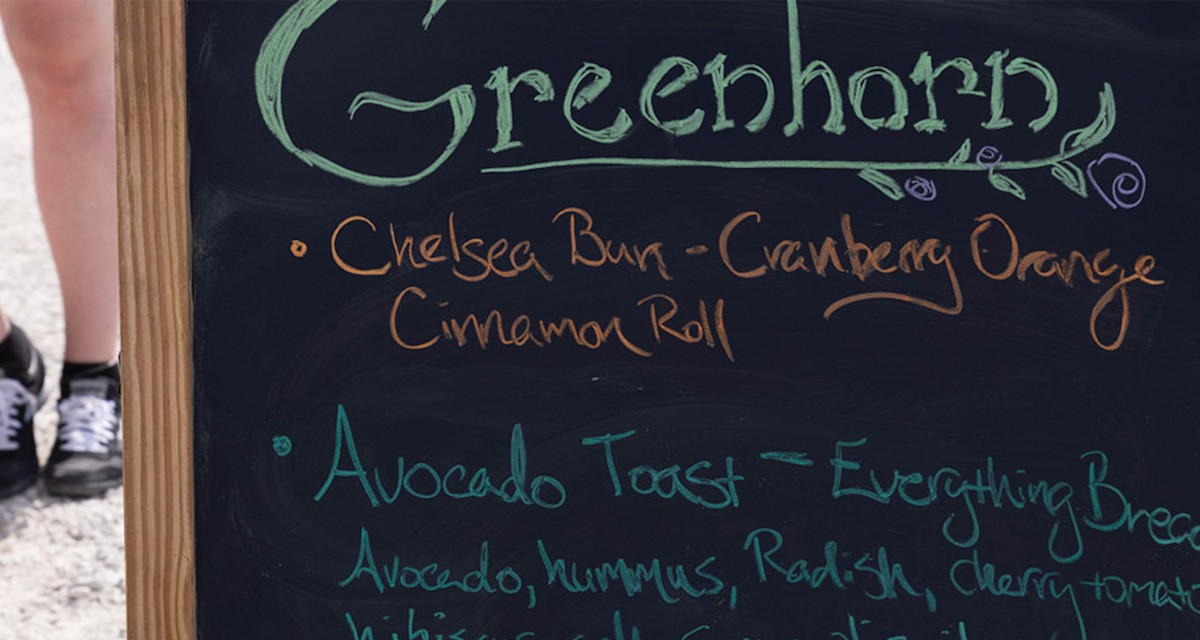 Greenhorn
• Chelsea Bun - Cranberry Orange
Cinnamon Roll
• Avocado Toast - Everything Bread
Avocado, hummus, Radish, cherry tomato
hibiscus salt